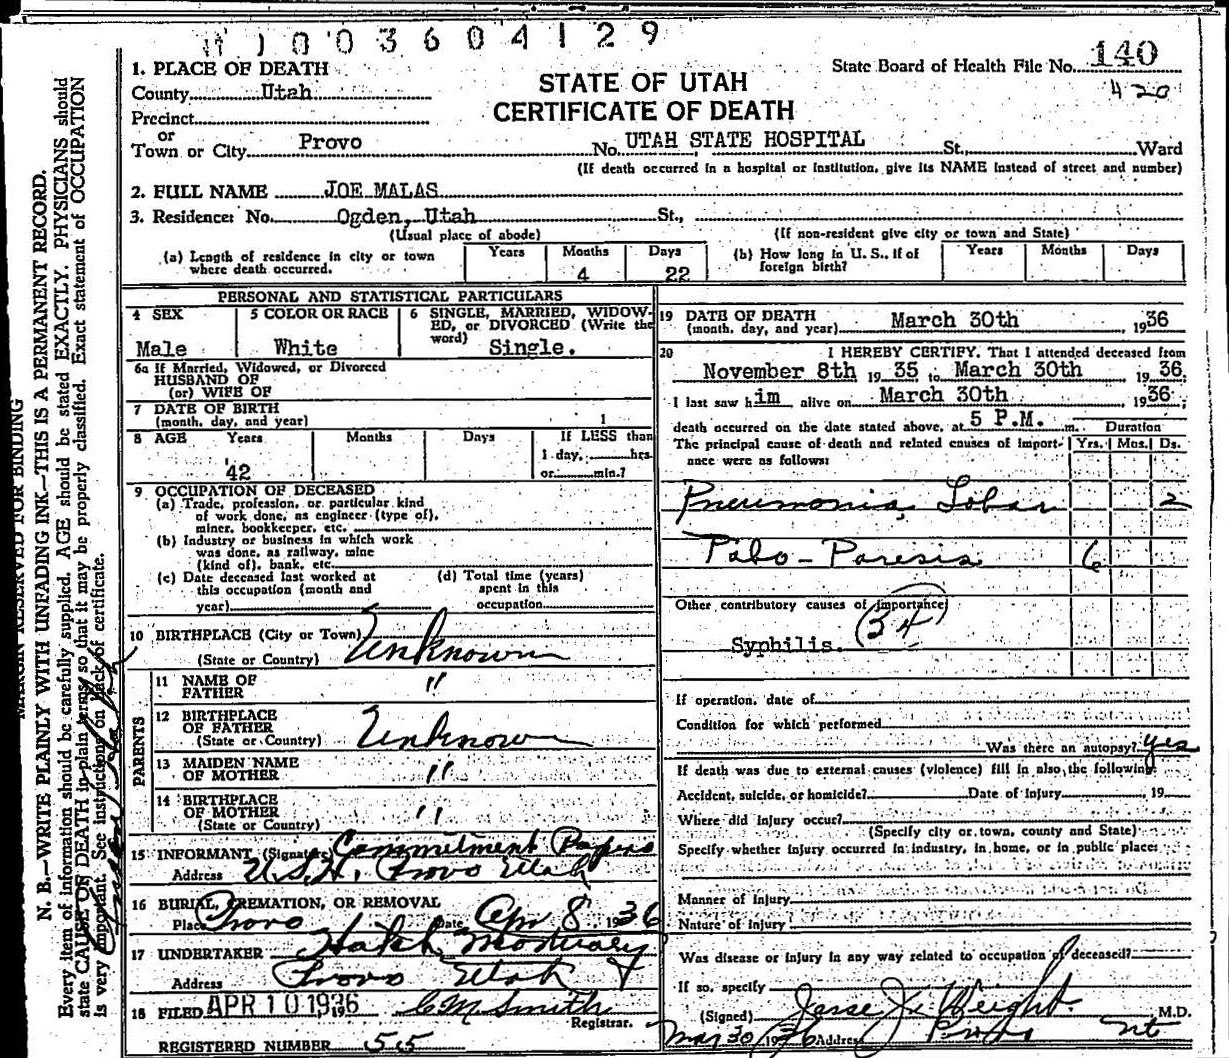 1003604129
1. PLACE OF DEATH
County Utah
Precinct
or
Town or City Provo
STATE OF UTAH
CERTIFICATE OF DEATH
State Board of Health File No. 140
420
No. UTAH STATE HOSPITAL St., Ward
(If death occurred in a hospital or institution, give its NAME instead of street and number)
2. FULL NAME JOE MALAS
3. Residence: No. Ogden, Utah St.,
(Usual place of abode) (If non-resident give city or town and State)
(a) Length of residence in city or town where death occurred. Years Months 4 Days 22
(b) How long in U. S., if of foreign birth? Years Months Days
PERSONAL AND STATISTICAL PARTICULARS
4 SEX Male
5 COLOR OR RACE White
6 SINGLE, MARRIED, WIDOWED, or DIVORCED (Write the word) Single.
6a If Married, Widowed, or Divorced
HUSBAND OF
(or) WIFE OF
7 DATE OF BIRTH
(month, day, and year) 1
8 AGE Years 42 Months Days If LESS than
1 day, hrs.
or min.?
9 OCCUPATION OF DECEASED
(a) Trade, profession, or particular kind
of work done, as engineer (type of),
miner, bookkeeper, etc.
(b) Industry or business in which work
was done, as railway, mine
(kind of), bank, etc.
(c) Date deceased last worked at
this occupation (month and
year)
(d) Total time (years)
spent in this
occupation
10 BIRTHPLACE (City or Town)
(State or Country) Unknown
PARENTS
11 NAME OF
FATHER "
12 BIRTHPLACE
OF FATHER
(State or Country) Unknown
13 MAIDEN NAME
OF MOTHER "
14 BIRTHPLACE
OF MOTHER
(State or Country) "
15 INFORMANT (Signature) Commitment Papers
Address U.S.H. Provo Utah
16 BURIAL, CREMATION, OR REMOVAL
Place Provo Date Apr 8 1936
17 UNDERTAKER Hatch Mortuary
Address Provo Utah
18 FILED APR 10 1936 C M Smith
Registrar.
REGISTERED NUMBER 55
19 DATE OF DEATH
(month, day, and year) March 30th 1936
20 I HEREBY CERTIFY, That I attended deceased from
November 8th 1935 to March 30th 1936
I last saw him alive on March 30th 1936;
death occurred on the date stated above, at 5 P.M. m. Duration
The principal cause of death and related causes of importance were as follows: Yrs. Mos. Ds.
Pneumonia, Lobar 2
Tabo-Paresis 6
Other contributory causes of importance
(34)
Syphilis.
If operation, date of
Condition for which performed
Was there an autopsy? yes
If death was due to external causes (violence) fill in also the following:
Accident, suicide, or homicide? Date of injury , 19
Where did injury occur?
(Specify city or town, county and State)
Specify whether injury occurred in industry, in home, or in public place:
Manner of injury
Nature of injury
Was disease or injury in any way related to occupation of deceased?
If so, specify
(Signed) Jesse J. Weight M.D.
Mar 30/1936 Address Provo Ut
MARGIN RESERVED FOR BINDING
N. B.—WRITE PLAINLY WITH UNFADING INK—THIS IS A PERMANENT RECORD.
Every item of information should be carefully supplied. AGE should be stated EXACTLY. PHYSICIANS should
state CAUSE OF DEATH in plain terms, so that it may be properly classified. Exact statement of OCCUPATION
is very important. See instructions on back of certificate.